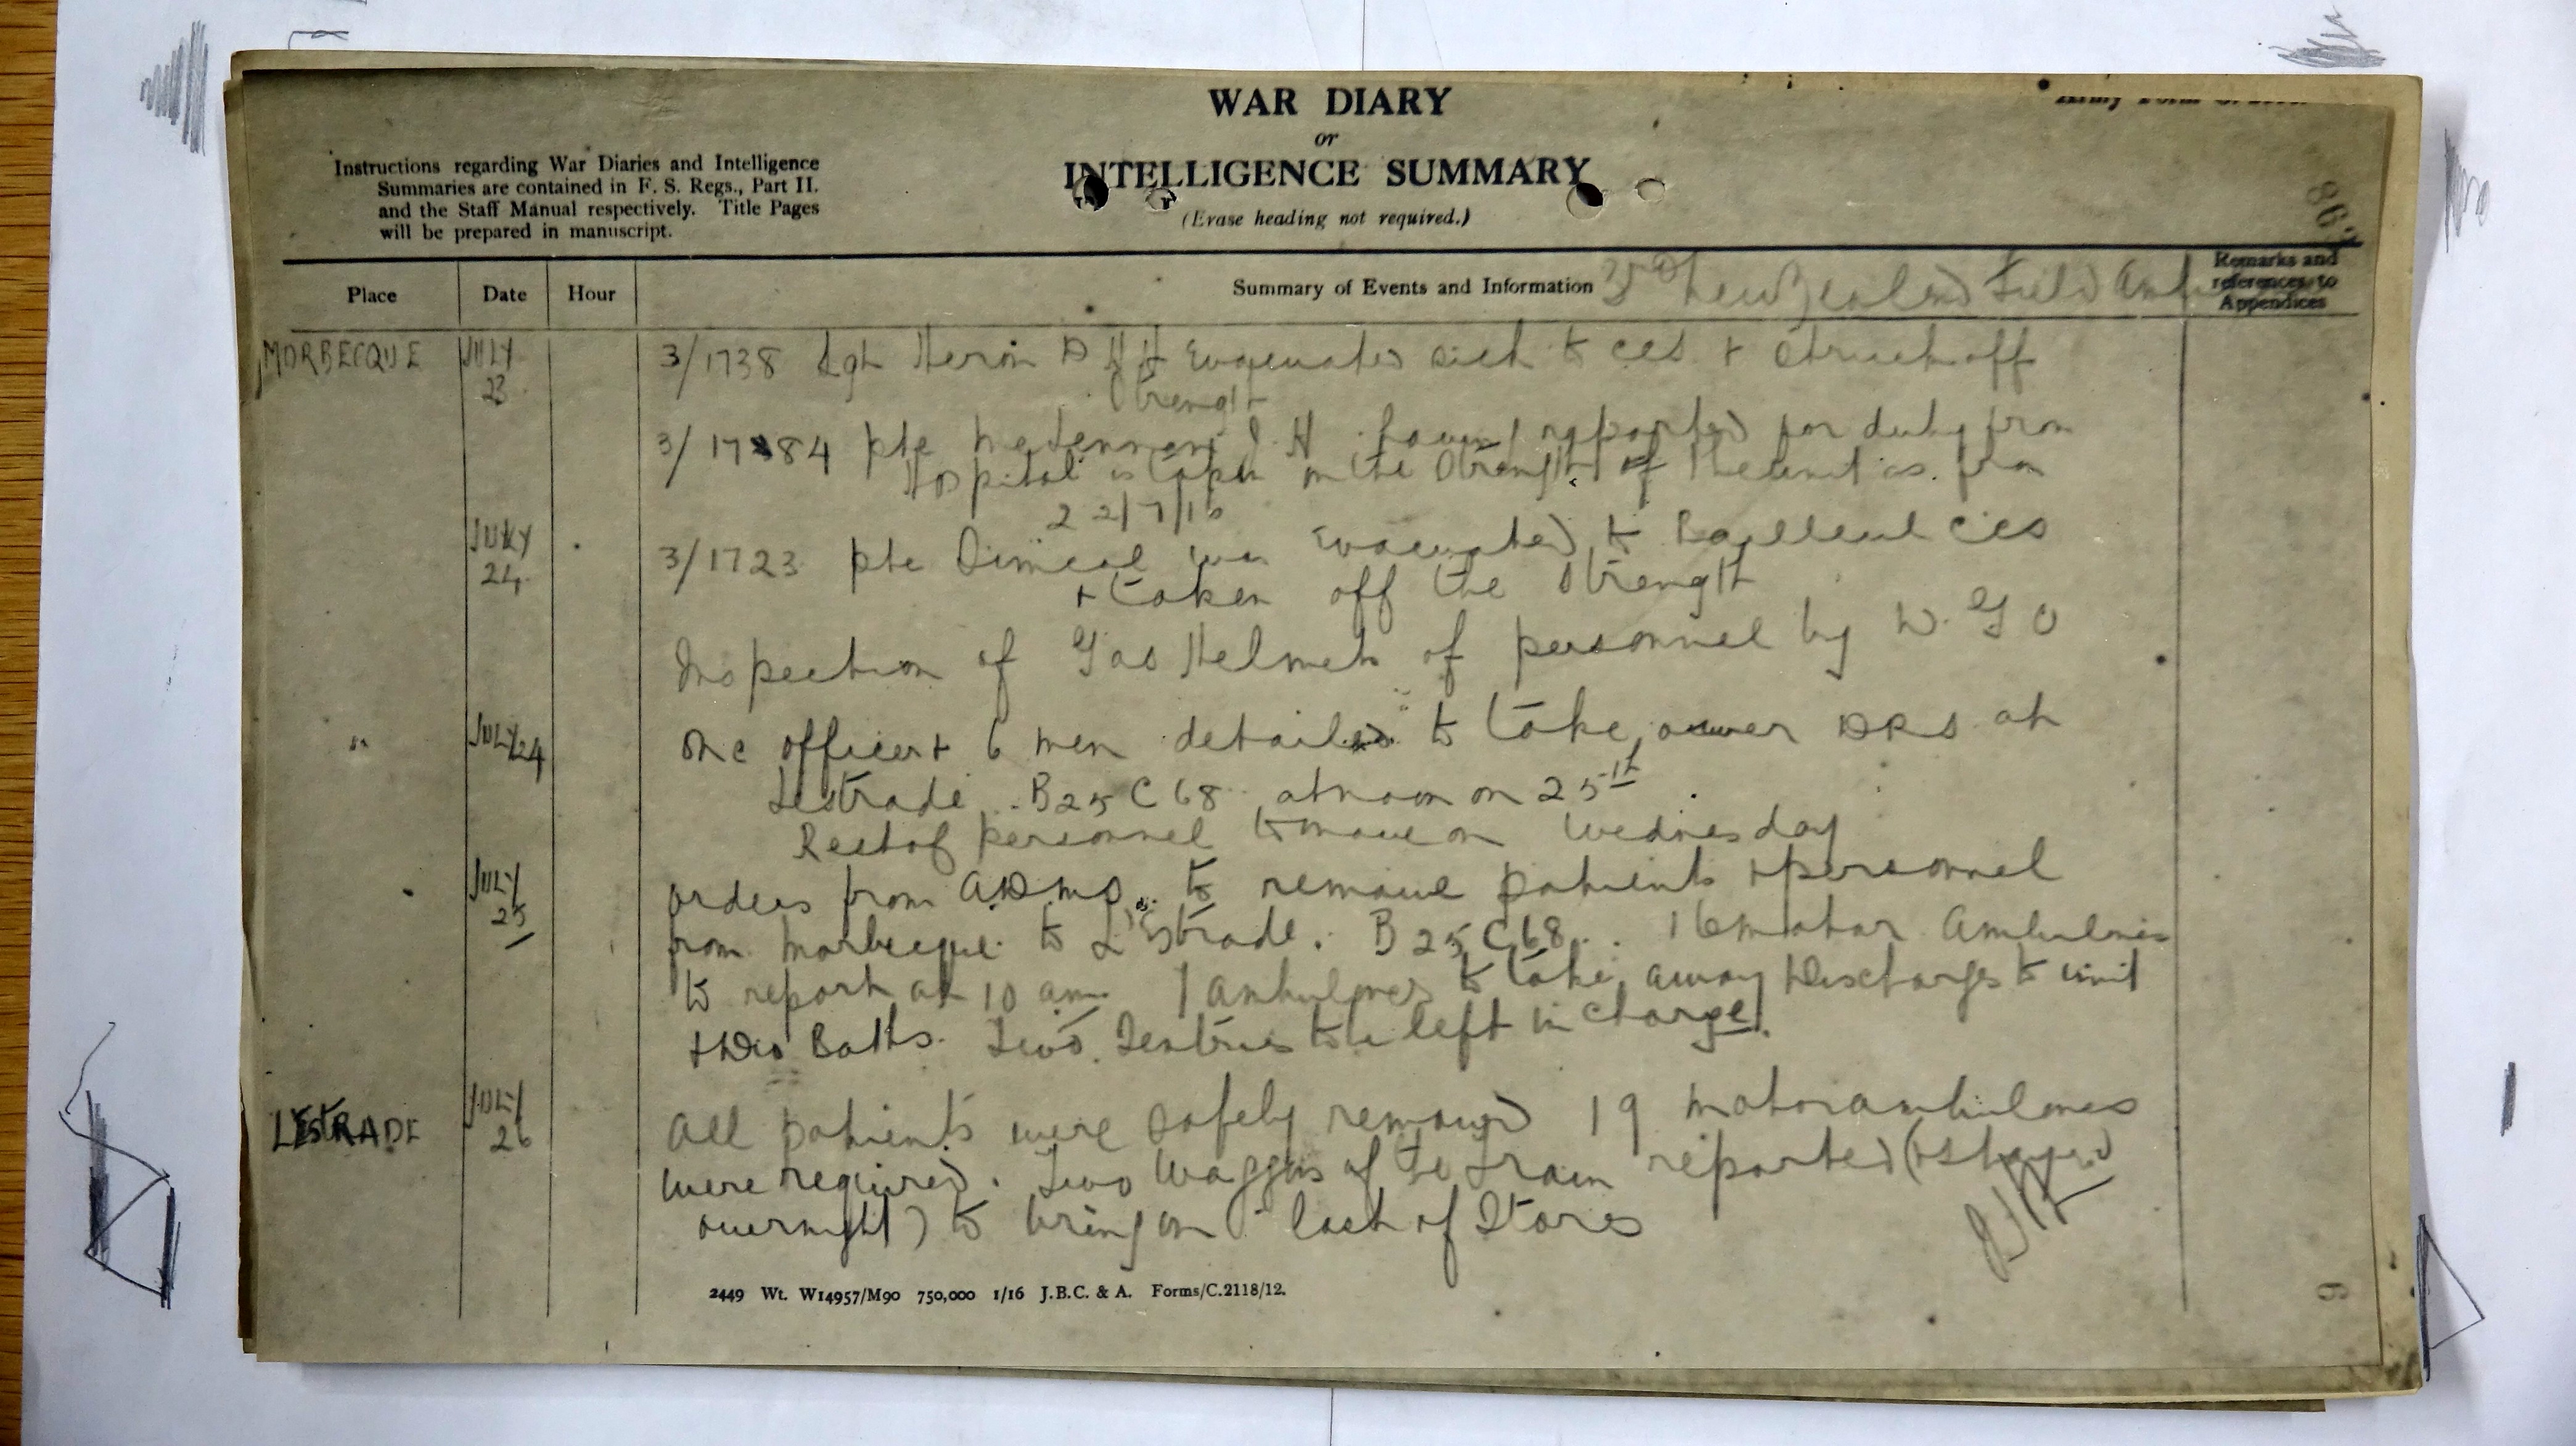 WAR DIARY
or
INTELLIGENCE SUMMARY
(Erase heading not required.)
Instructions regarding War Diaries and Intelligence
Summaries are contained in F. S. Regs., Part II.
and the Staff Manual respectively. Title Pages
will be prepared in manuscript.
Place Date Hour Summary of Events and Information 3rd New Zealand Field Amb
Remarks and
references to
Appendices
MORBECQUE JULY 23 3/1738 Sgt Heron D H Evacuated sick to CCS + struck off
Strength
3/1784 pte J. H. having reported for duty from
Hospital is taken on the Strength of the unit as from
22/7/16
JULY 24 3/1723 pte was Evacuated to Bailleul CCS
+ taken off the Strength
Inspection of Gas Helmets of personnel by D. G O
" JULY 24 One officer + 6 men detailed to take over DRS at
Lestrade B25 C 68 at noon on 25th
Rest of personnel to move on Wednesday
JULY 25 orders from ADMS. to remove patients + personnel
from Morbecque to L'Estrade. B 25 C 68. 16 motor Ambulances
to report at 10 am 1 ambulance to take away Discharges to unit
+ Div Baths. Two Sentries to be left in charge.
LESTRADE JULY 26 All patients were safely removed 19 motor ambulances
were required. Two Waggons of the Train reported (+ stayed
overnight) to bring on last of Stores
2449 Wt. W14957/M90 750,000 1/16 J.B.C. & A. Forms/C.2118/12.